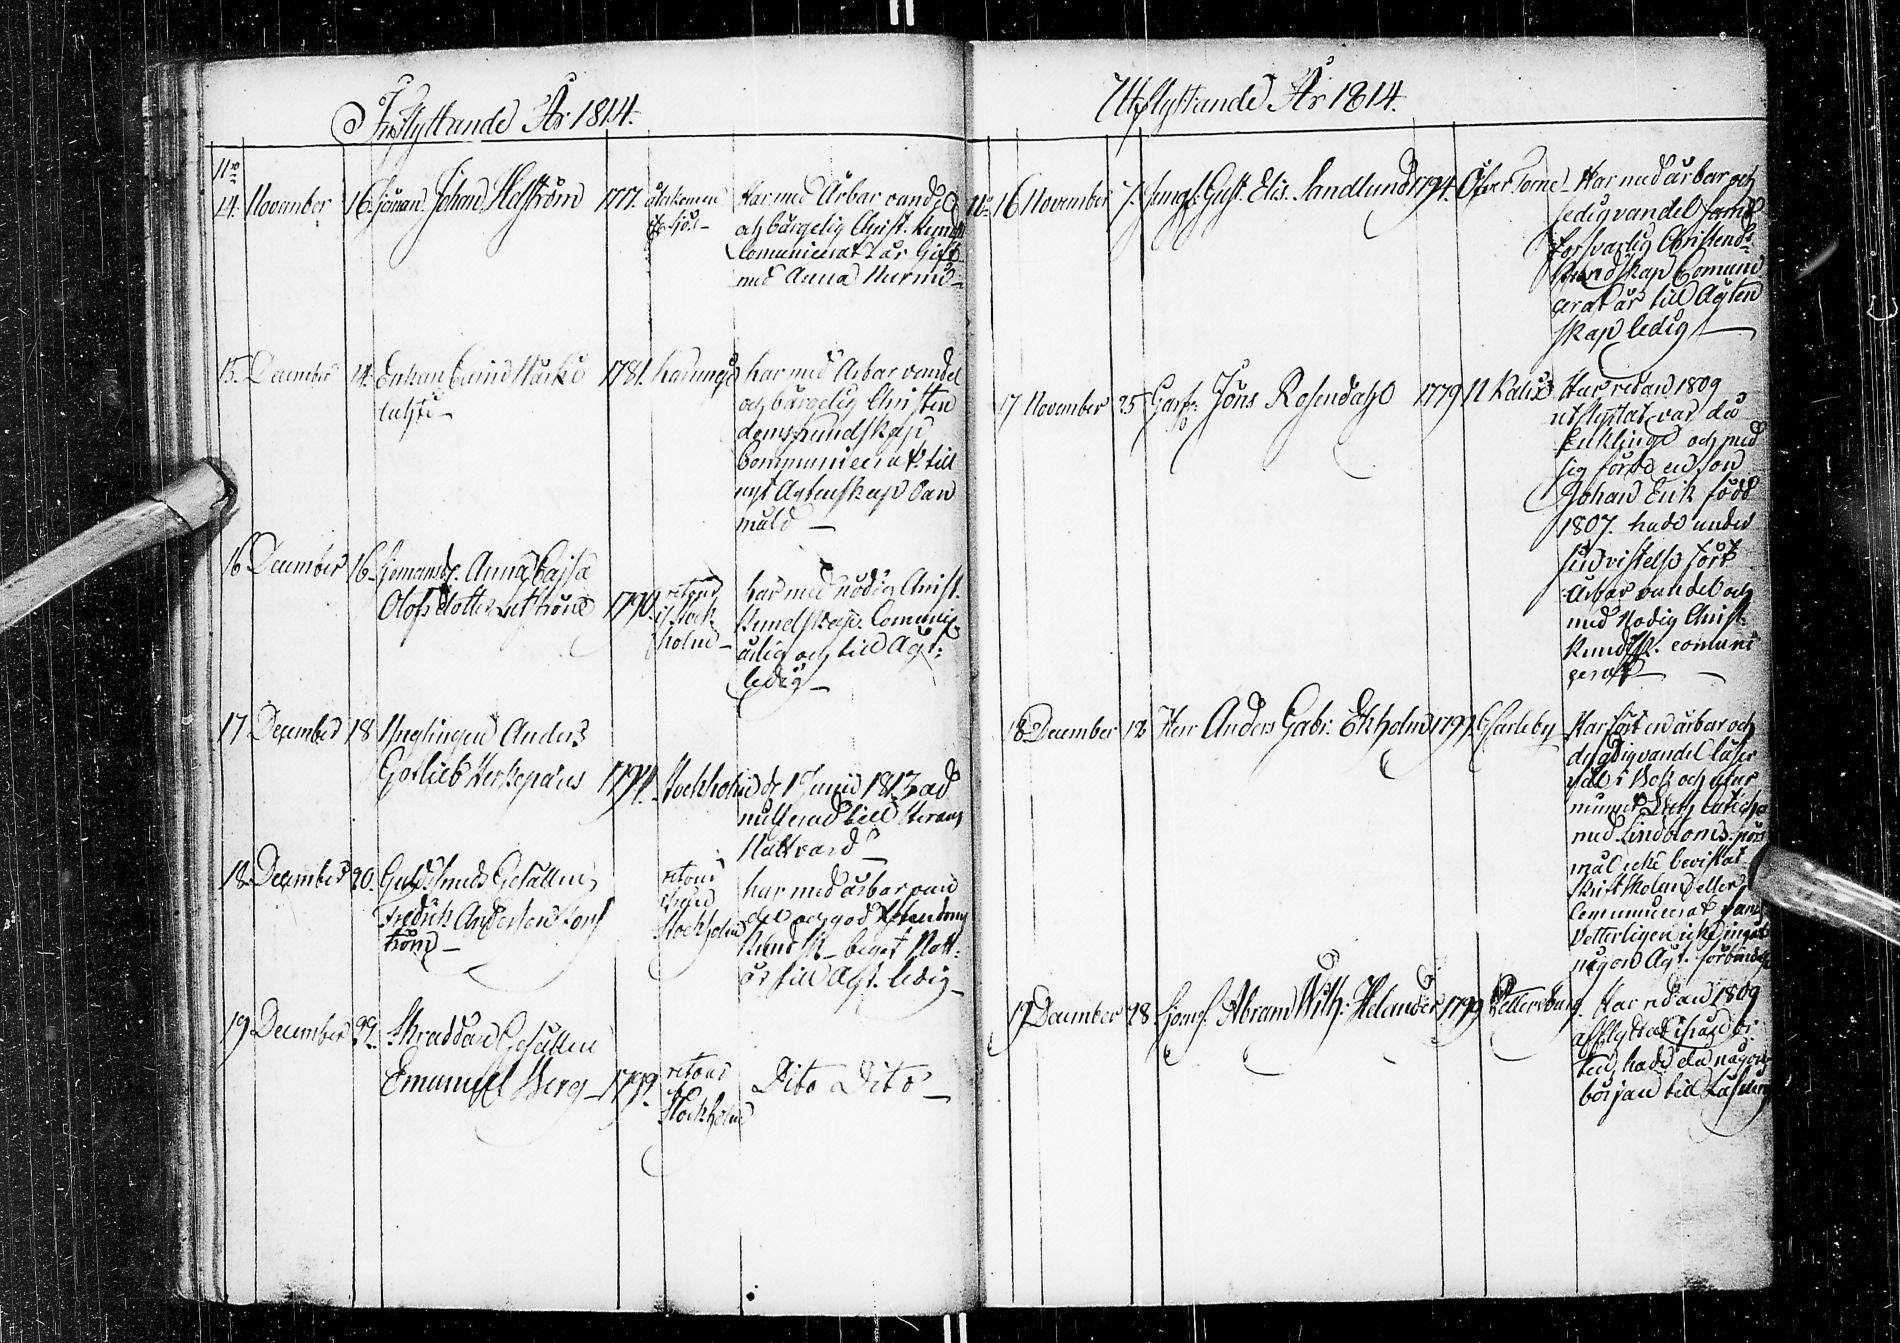 Inflyttande År 1814.
No
14. November 16. Sjöman Johan Hellström 1777. återkommen
Har med Ärbar vandel
och bärgelig Christ. Kunsk
Comunicerat är Gift
med Anna
15. December 14. Enkan 1781. Karungi
lahti
har med Ärbar vandel
och bärgelig Christen
domskundskap
Communicerat till
nytt Agtenskap oan
mäld
16 December 16. Sjömansd. Anna Cajsa
Olofsdotter 1790. retour
f. Stock
holm
har med nödig Christ.
Kundskap. Comunic.
årlig och till Ägt:
ledig
17 December 18 Ynglingen Anders
Gotlieb 1794. Stockholm d. 1 Junii 1813 ad
mitterad till Herrans
Nattvard
18 December 20. Guldsmeds Gesällen
Fredrich Anderson
ström
retour
ifrån
Stockholm
har med ärbar van
del och god Christendoms
Kundsk. beget Natt.
är till Agt. ledig
19 December 22. Skraddare Gesällen
Emanuel Berg 1799. retour
f
Stockholm
Dito Dito
Utflyttande År 1814.
No 16 November 7. Jungf. Gust. Elis. Sandlund 1794. Öfver Torne
Har med ärbar och
sedigvandel samt
forsvarlig Christend:
Kundskap Comuni
cerat är till Agten
skap ledig
17 November 25 Garf. Jöns Rosendahl 1779 N Kalix
Har redan 1809
utflyttat var då
Enkling och med
sig förde en son
Johan Erik född
1807. hade under
sin vistelse fört
Ärbar vandel och
med Nodig Christ.
Kundsk. comuni
cerat
18 December 12 Herr Anders Gabr: Ekholm 1797 Gharleby
Har fört en ärbar och
dygdig vandel läser
väl i Bok och utur
minnet Luth. catechs
med Lindbloms spörs
mål icke bevistat
Skriftskolan eller
Communicerat
Vetterligen icke ingått
någon Agt. förbindelse
19 December 28. Abram With: Helander 1799 Pettersburg
Har redan 1809
afflyttat ifrån
hade då någon
början till Läsning